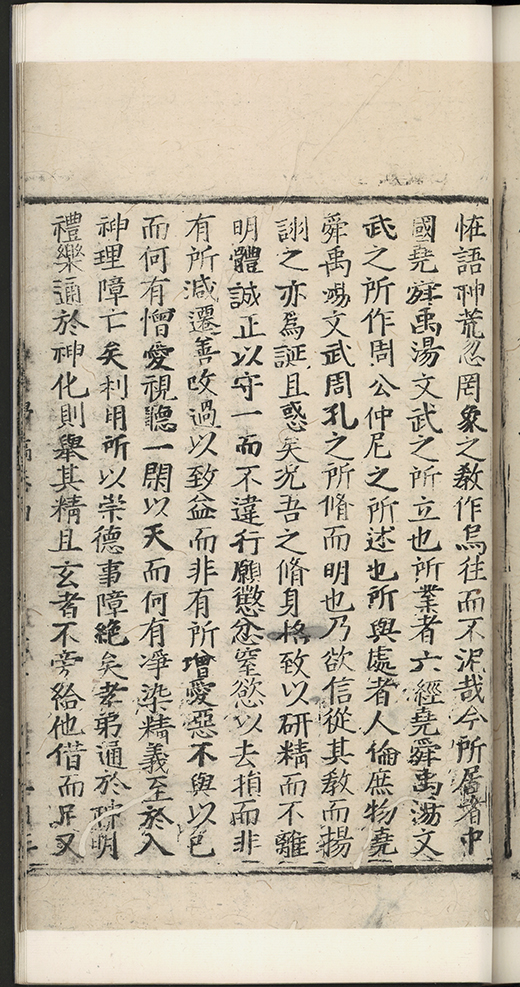 怪語神荒忽罔象之敎作烏徃而不泥哉今所居者中
國堯舜禹湯文武之所立也所業者六經堯舜禹湯文
武之所作周公仲尼之所述也所與處者人倫庶物堯
舜禹湯文武周孔之所脩而明也乃欲信從其敎而揚
詡之亦為誕且惑矣况吾之脩身格致以研精而不離
明體誠正以守一而不違行願懲忿窒慾以去損而非
有所减遷善攺過以致益而非有所增愛惡不與以己
而何有憎愛視聽一閑以天而何有凈染精義至於入
神理障亡矣利用所以崇德事障絶矣孝弟通於神明
禮樂通於神化則舉其精且玄者不旁給他借而足又